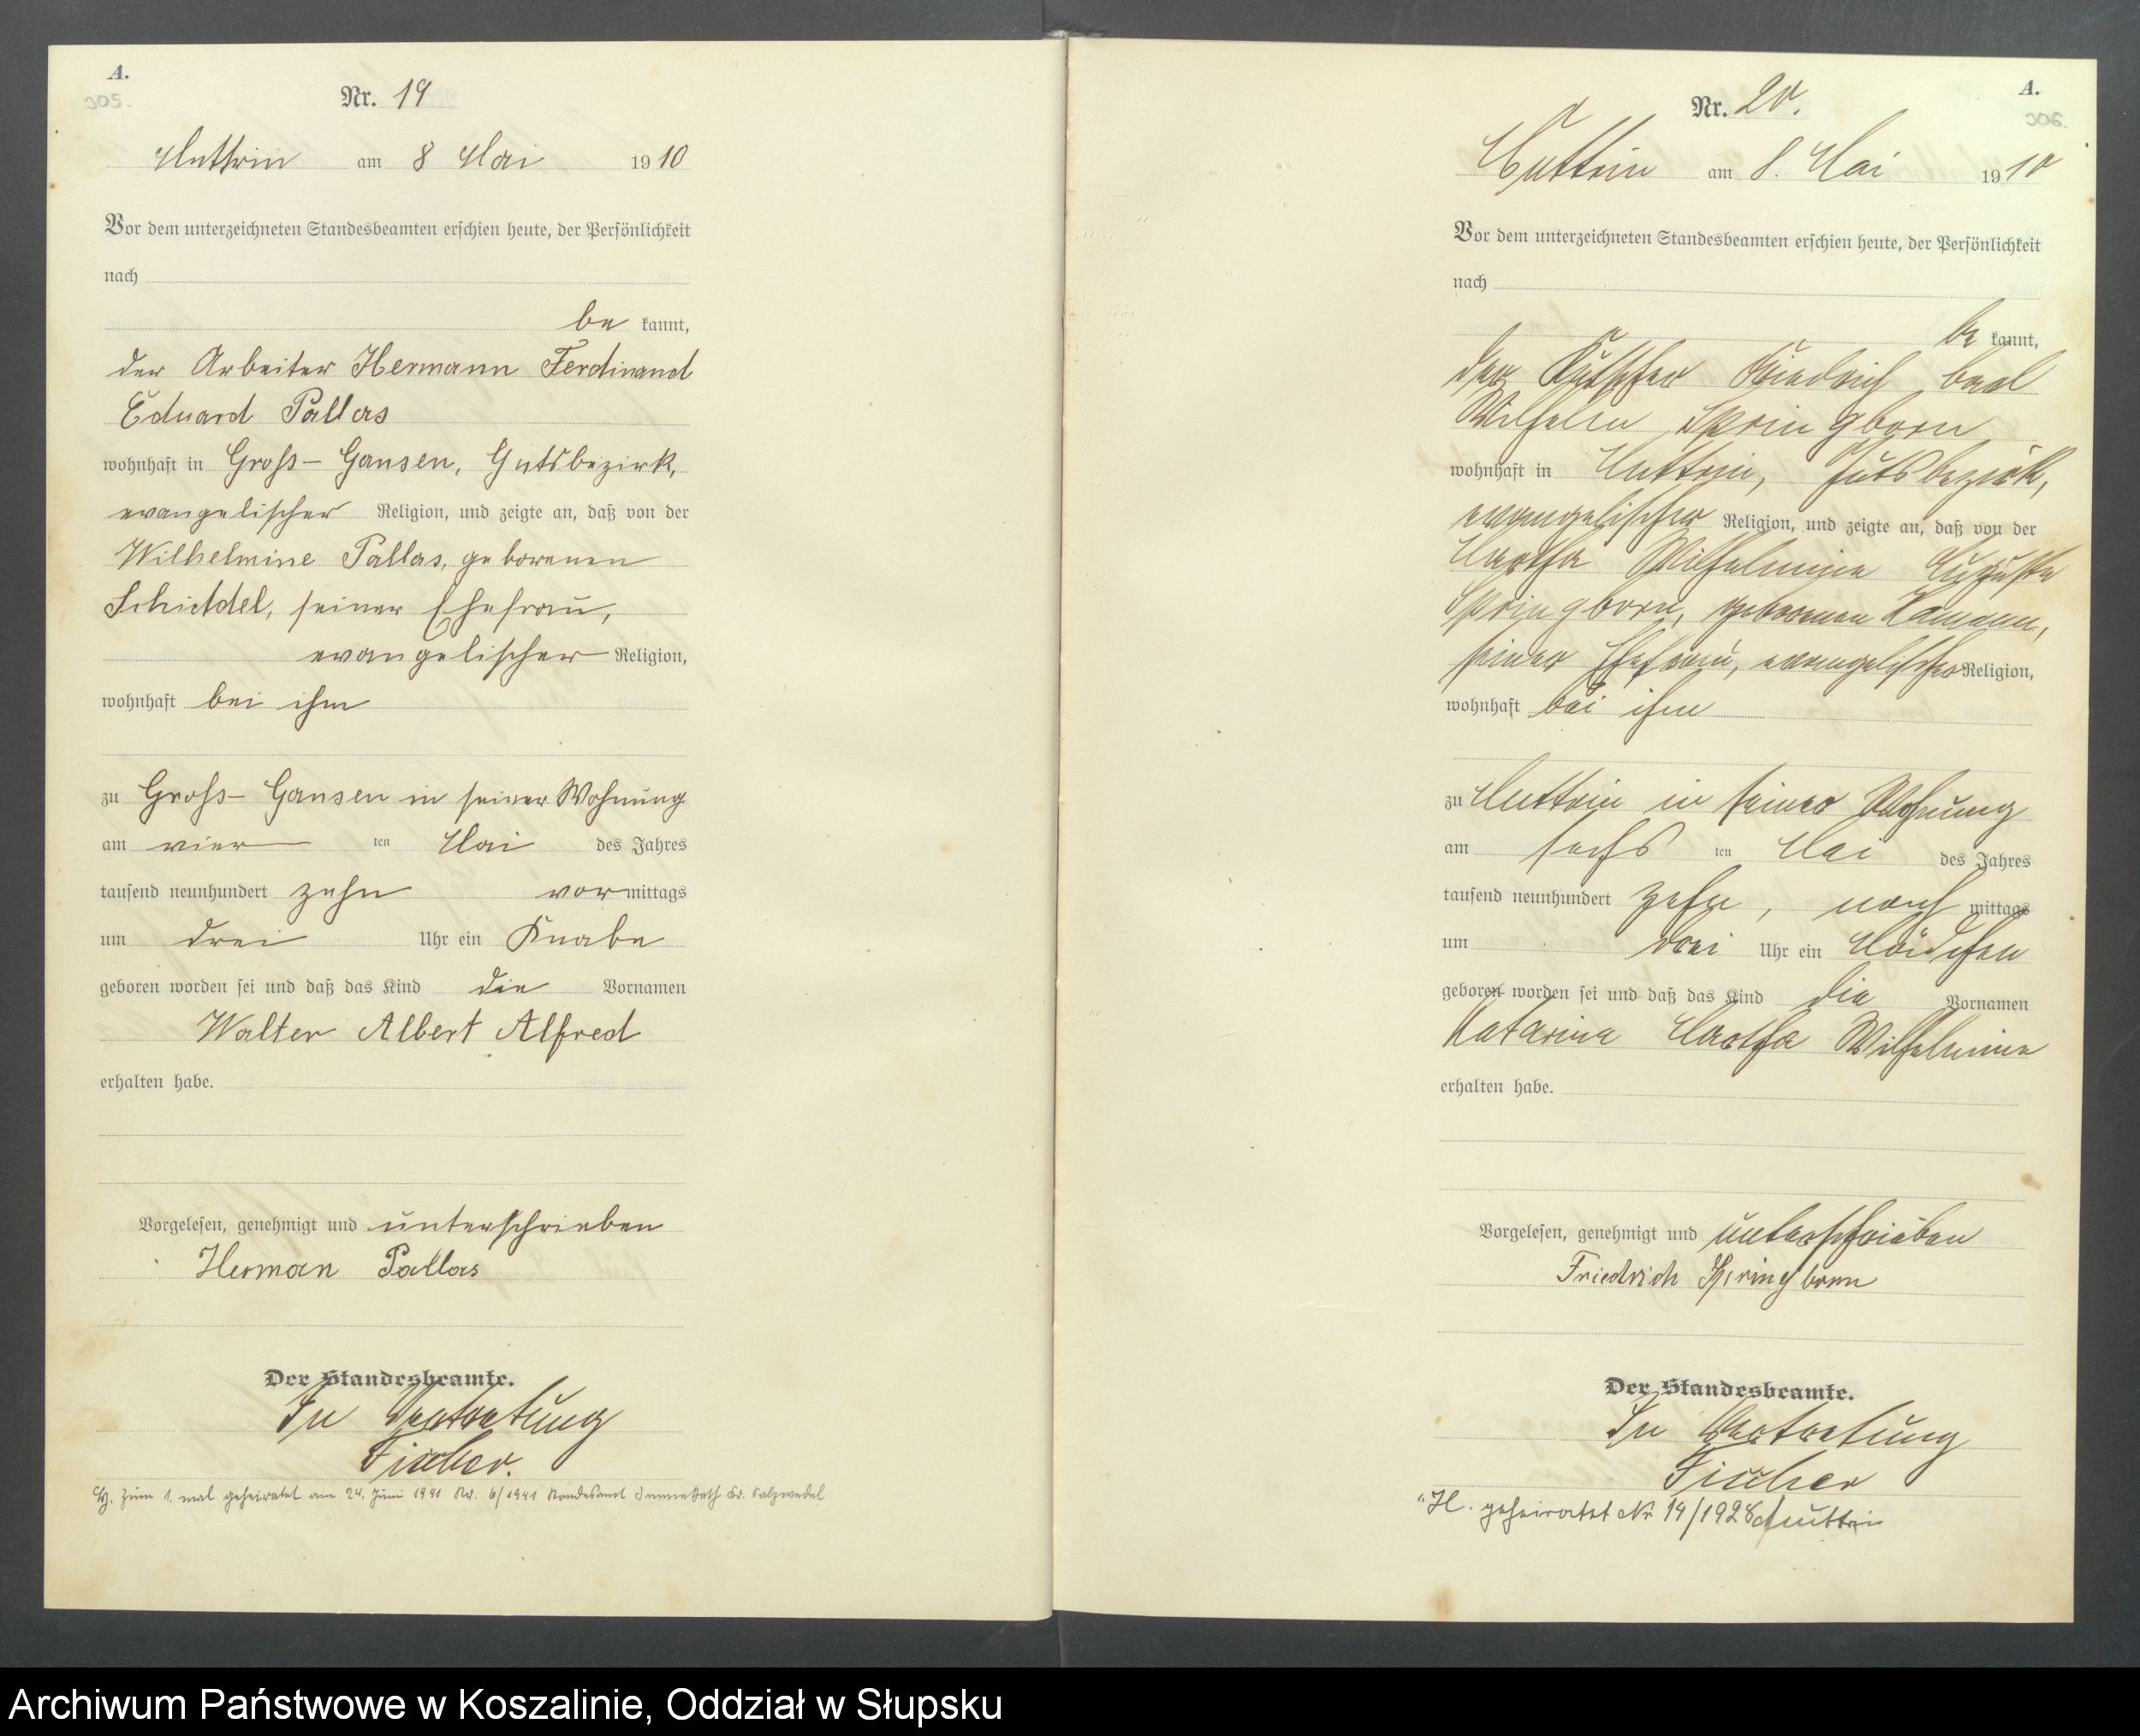 A.
305.
Nr. 19
Muttrin am 8 Mai 1910
Vor dem unterzeichneten Standesbeamten erschien heute, der Persönlichkeit
nach
be kannt,
der Arbeiter Hermann Ferdinand
Eduard Pallas
wohnhaft in Groß-Gansen, Gutsbezirk,
evangelischer Religion, und zeigte an, daß von der
Wilhelmine Pallas, geborenen
seiner Ehefrau,
evangelischer Religion,
wohnhaft bei ihm
zu Groß-Gansen in seiner Wohnung
am vier ten Mai des Jahres
tausend neunhundert zehn vormittags
um drei Uhr ein Knabe
geboren worden sei und daß das Kind die Vornamen
Walter Albert Alfred
erhalten habe.
Vorgelesen, genehmigt und unterschrieben
Herman Pallas
Der Standesbeamte.
In Vertretung
Fischer.
zum 1. mal geheiratet am 24. Juni 1941 Nr. 6/1941 Standesamt Kr. Salzwedel
A.
306.
Nr. 20.
Muttrin am 8. Mai 1910
Vor dem unterzeichneten Standesbeamten erschien heute, der Persönlichkeit
nach
be kannt,
der Kutscher Friedrich Carl
Wilhelm Springborn
wohnhaft in Muttrin, Gutsbezirk,
evangelischer Religion, und zeigte an, daß von der
Martha Wilhelmine Auguste
Springborn, geborenen Ramann,
seiner Ehefrau, evangelischer Religion,
wohnhaft bei ihm
zu Muttrin in seiner Wohnung
am sechs ten Mai des Jahres
tausend neunhundert zehn, nach mittags
um drei Uhr ein Mädchen
geboren worden sei und daß das Kind die Vornamen
Katarina Martha Wilhelmine
erhalten habe.
Vorgelesen, genehmigt und unterschrieben
Friedrich Springborn
Der Standesbeamte.
In Vertretung
Fischer
geheiratet Nr 14/1928 Muttrin
Archiwum Państwowe w Koszalinie, Oddział w Słupsku